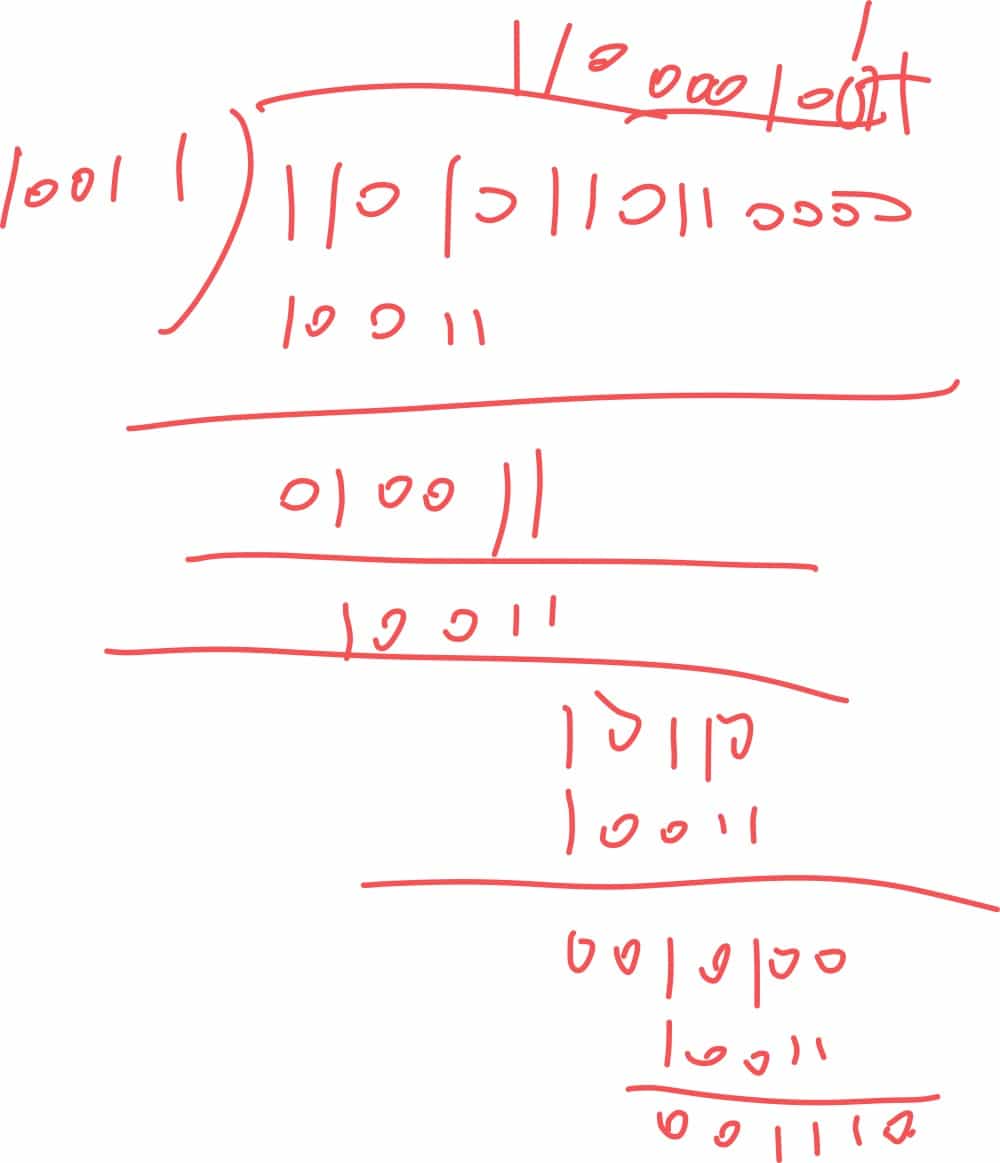 110000100
10011 ) 11010110110000
10011
010011
10011
10110
10011
0010100
10011
001110